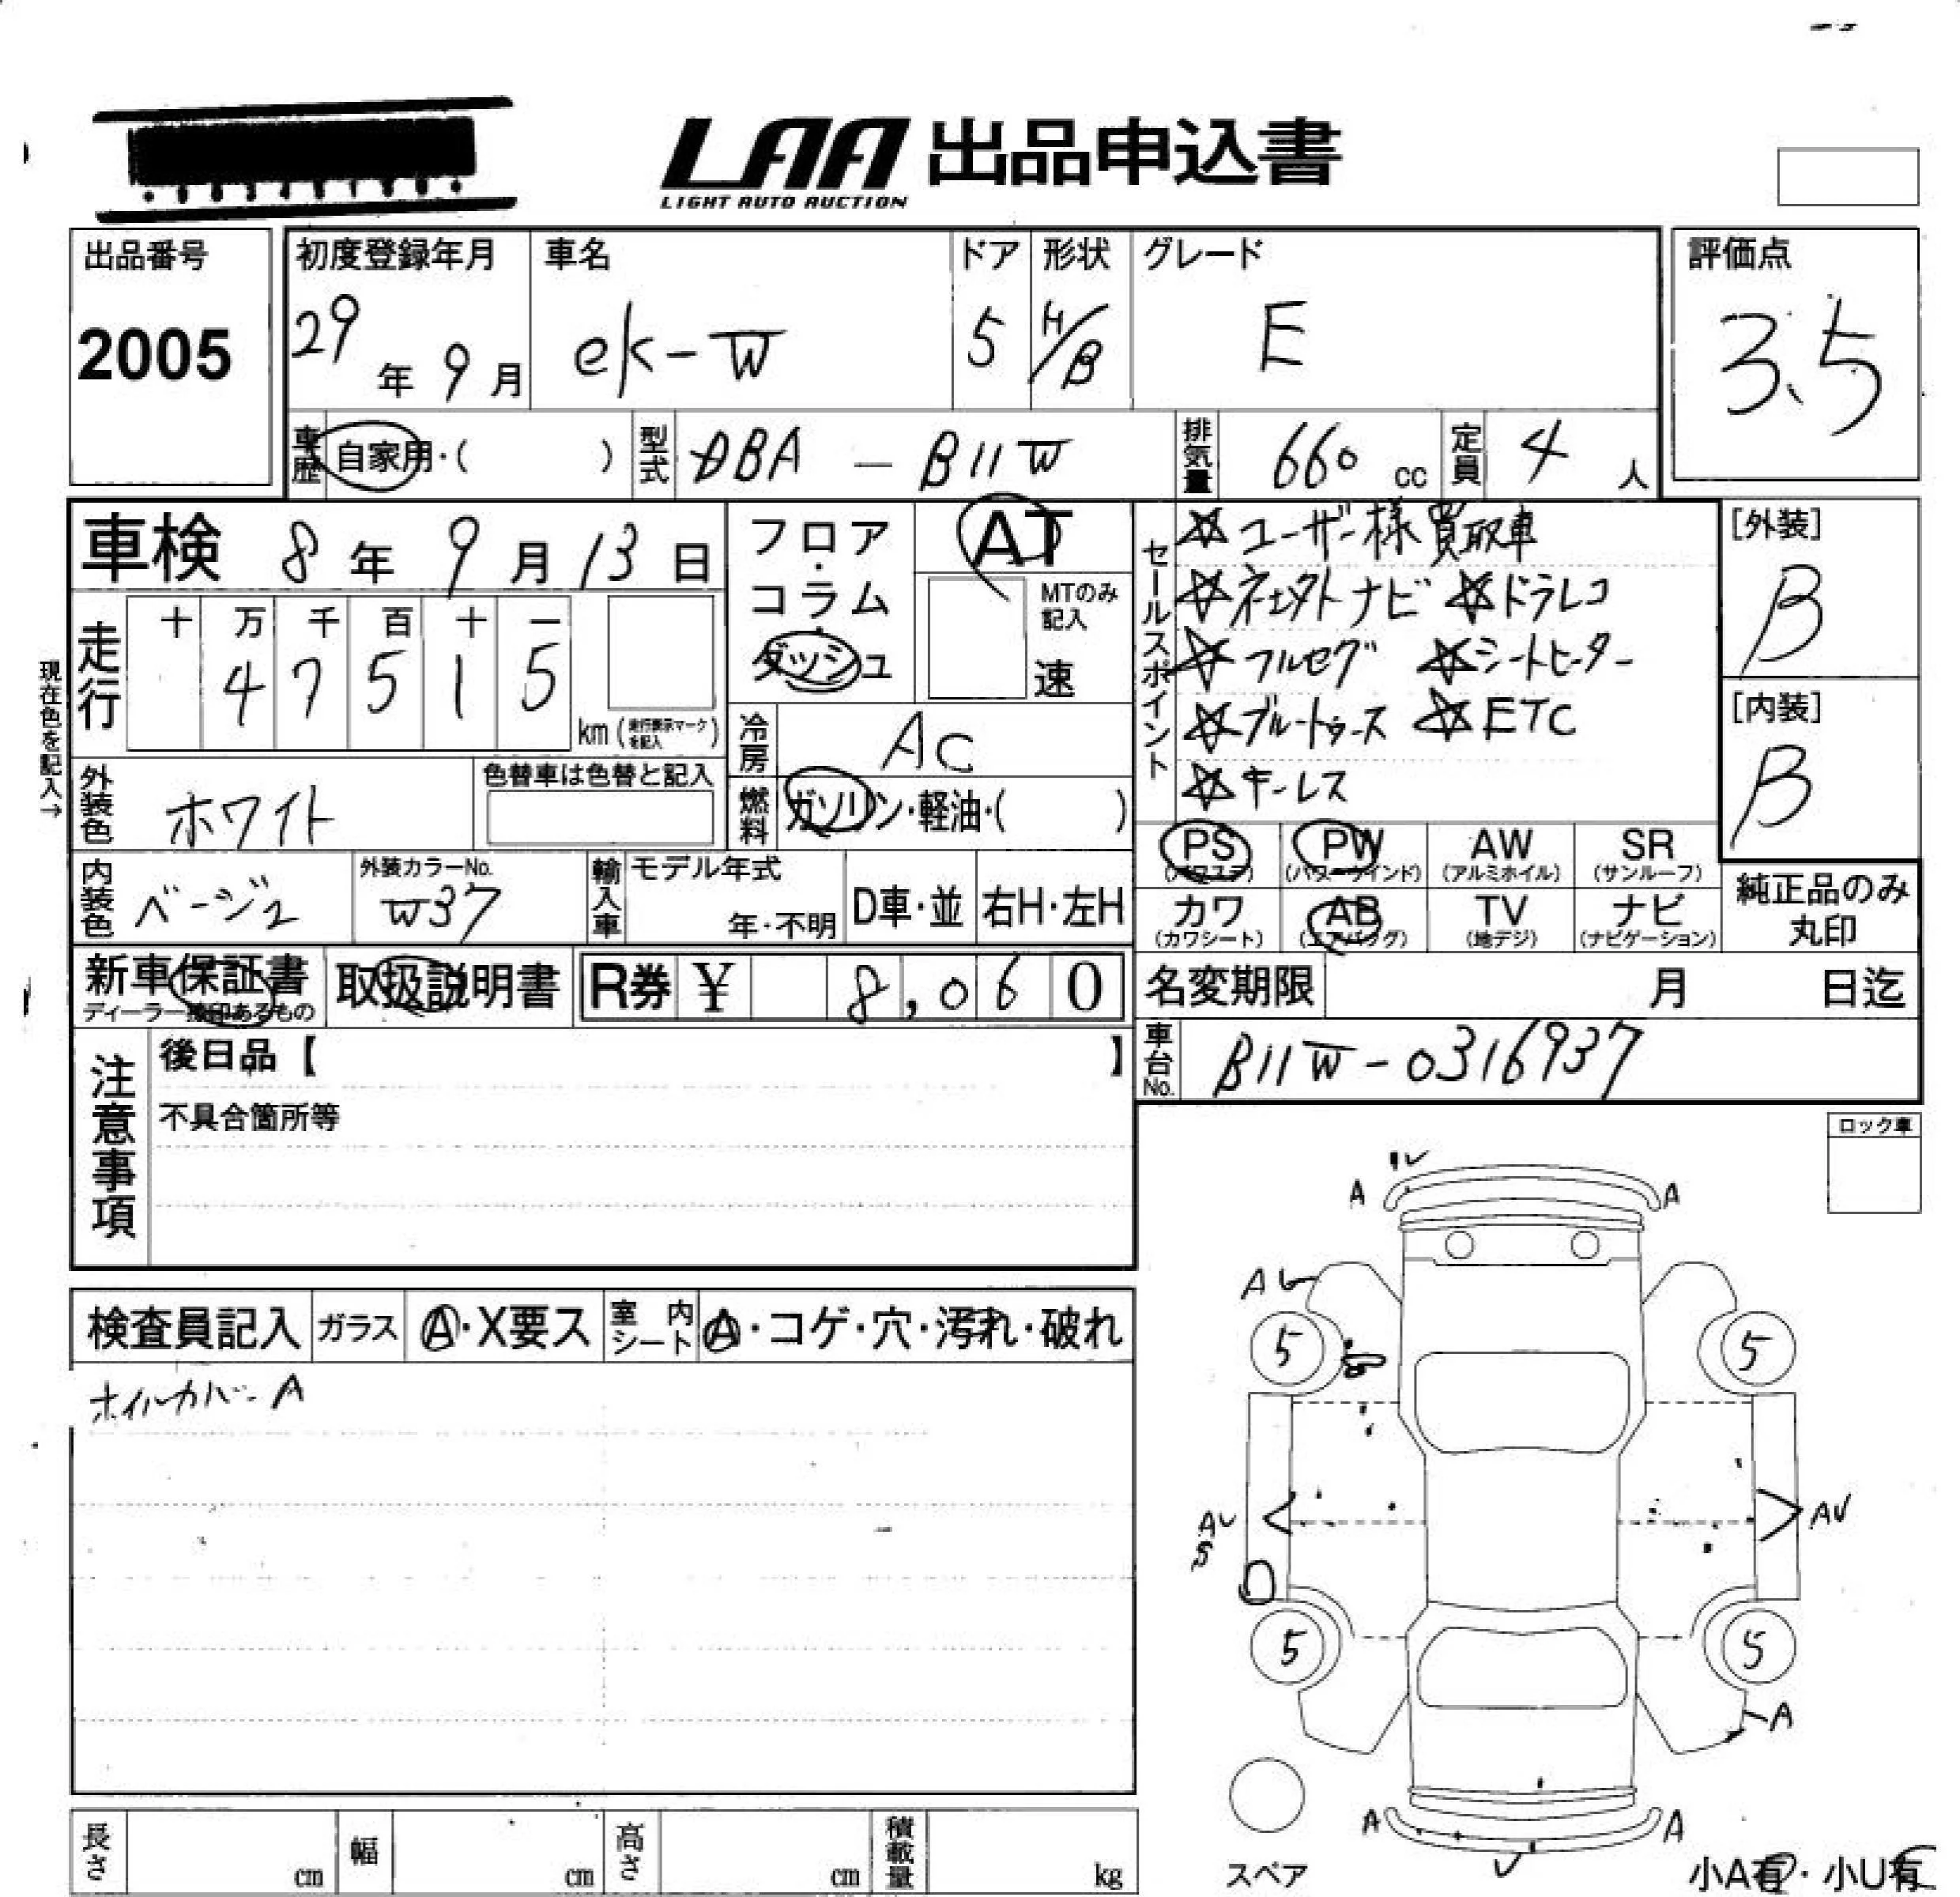 LAA 出品申込書
LIGHT AUTO AUCTION
出品番号 初度登録年月 車名 ドア 形状 グレード 評価点
2005 29年9月 ek-W 5 H/B E 3.5
車歴 自家用・( ) 型式 DBA - B11W 排気量 660 cc 定員 4 人
車検 8年9月13日
フロア・コラム・ダッシュ
AT
MTのみ記入
速
セールスポイント
☆ユーザー様買取車
☆ネクストナビ ☆ドラレコ
☆フルセグ ☆シートヒーター
☆ブルートゥース ☆ETC
☆キーレス
[外装]
B
[内装]
B
現在色を記入→
走行 十 万 千 百 十 一
4 7 5 1 5 km (走行表示マークを記入)
冷房 AC
外装色 ホワイト 色替車は色替と記入
燃料 ガソリン・軽油・( )
内装色 ベージュ 外装カラーNo. W37 輸入車 モデル年式 年・不明 D車・並 右H・左H
PS (パワステ) PW (パワーウインド) AW (アルミホイル) SR (サンルーフ)
カワ (カワシート) AB (エアバッグ) TV (地デジ) ナビ (ナビゲーション)
純正品のみ丸印
新車保証書 取扱説明書 R券 ¥ 8,060
ディーラー捺印あるもの
名変期限 月 日迄
車台No. B11W-0316937
注意事項
後日品【 】
不具合箇所等
ロック車
検査員記入 ガラス A・X要ス 室内シート A・コゲ・穴・汚れ・破れ
ホイルカバー A
A A
A
5 5
AU AU
S
5 5
A
A A
スペア
小A有・小U有
長さ cm 幅 cm 高さ cm 積載量 kg